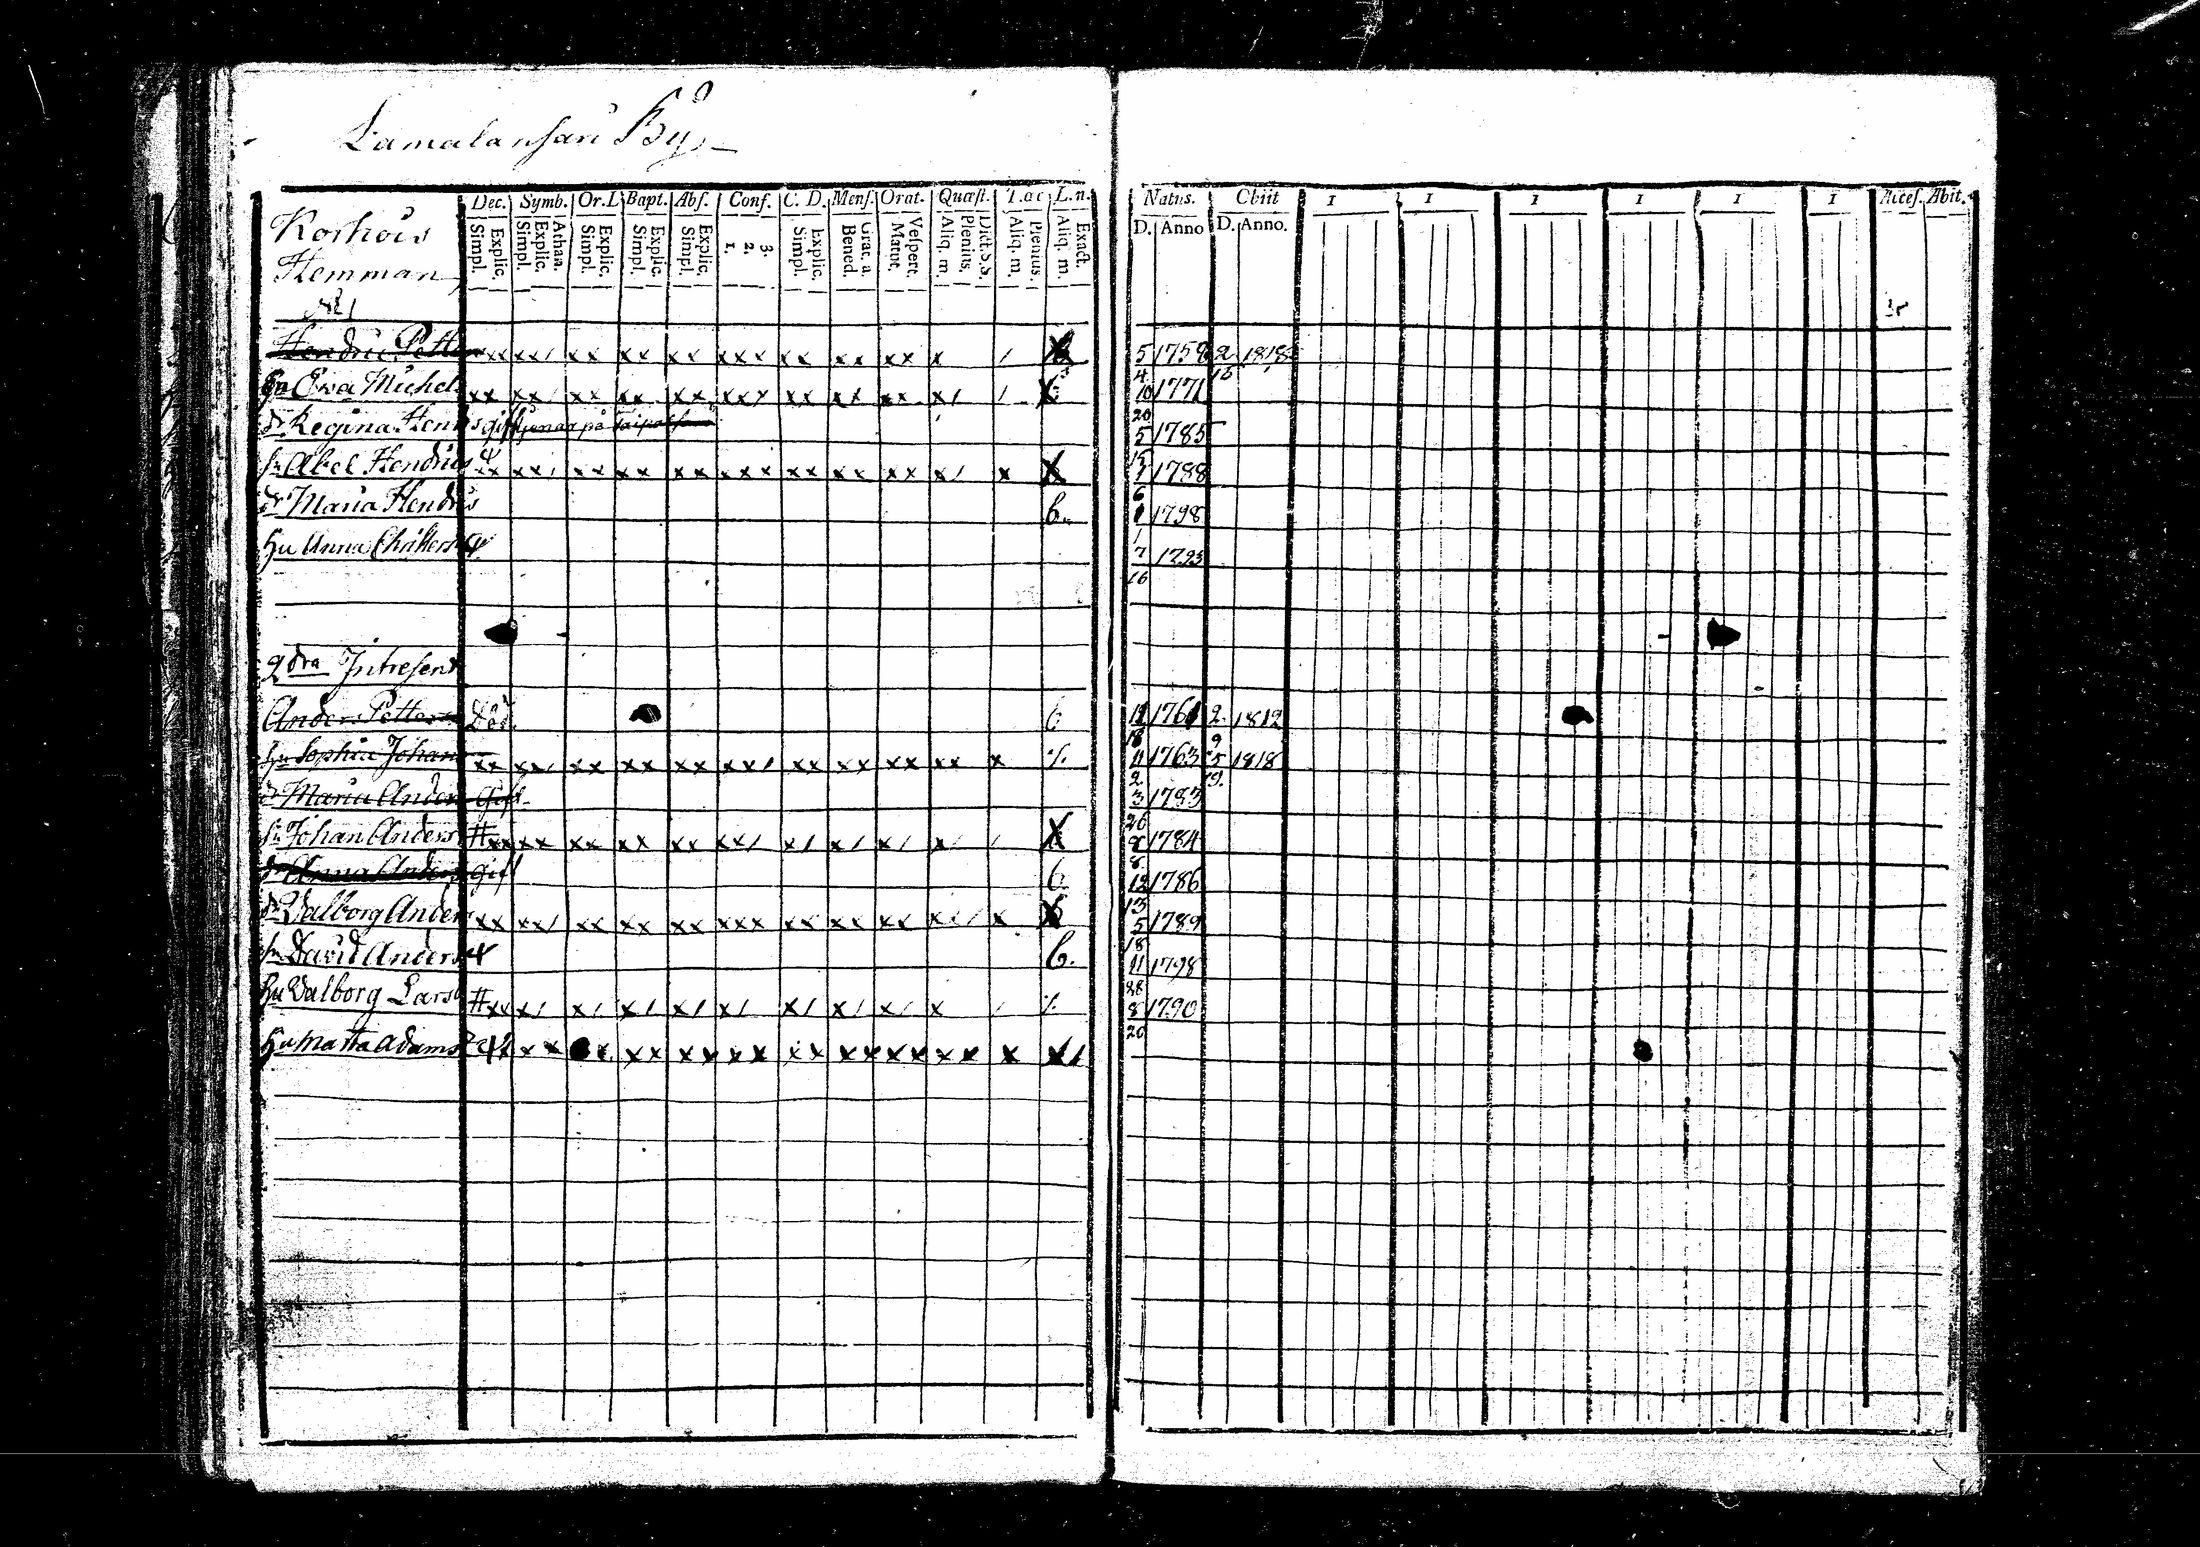 Lamalansari By
Dec. Symb. Or.D Bapt. Abs. Conf. C. D. Mens. Orat. Quæst. T.ac L.n.
Explic. Simpl. Athan. Explic. Simpl. Explic. Simpl. Explic. Simpl. Explic. Simpl. 3. 2. 1. Explic. Simpl. Grat. a. Bened. Vespert. Matut. Dict.S.S. Plenius. Aliq. m. Plenius. Aliq. m. Exact. Aliq. m.
Natus. Obiit 1 1 1 1 1 1 Acces. Abit.
D. Anno D. Anno.
Korhois
Hemman
No 1
Hendric Petters xx xx/ xx xx xx xxx xx xx xx x / 5 1758 2 1818
4 13
Hu Ewa Michels xx xx/ xx xx xx xxx xx x/ xx x/ / 10 1771
20
dr Regina Henrs gift tjenar på 5 1785
15
sn Abel Hendrics xx xx/ xx xx xx xxx xx xx xx x/ x X 1788
6
dr Maria Hendrs b. 1 1798
1
Hu Anna 7 1793
16
2dra Intresent
Anders Petters Död. 6 12 1761 2 1812
18 9
Hu Sophia Johan xx xx/ xx xx xx xx/ xx xx xx xx x 11 1763 5 1818
2 9.
dr Maria Anders Gift 3 1783
26
sn Johan Anders # xx xx xx xx xx xx/ x/ x/ x/ x/ / X 8 1784
8
dr Anna Anders gift 6 12 1786
13
dr Walborg Anders xx xx/ xx xx xx xxx xx xx xx xx/ x 5 1789
18
sn David Anders 4 b. 11 1798
28
Hu Walborg Lars # xx x/ x/ x/ x/ x/ x/ x/ x/ x / 8 1790
20
Hu Matta Adams xx xx xx xx xx xx xx xx x